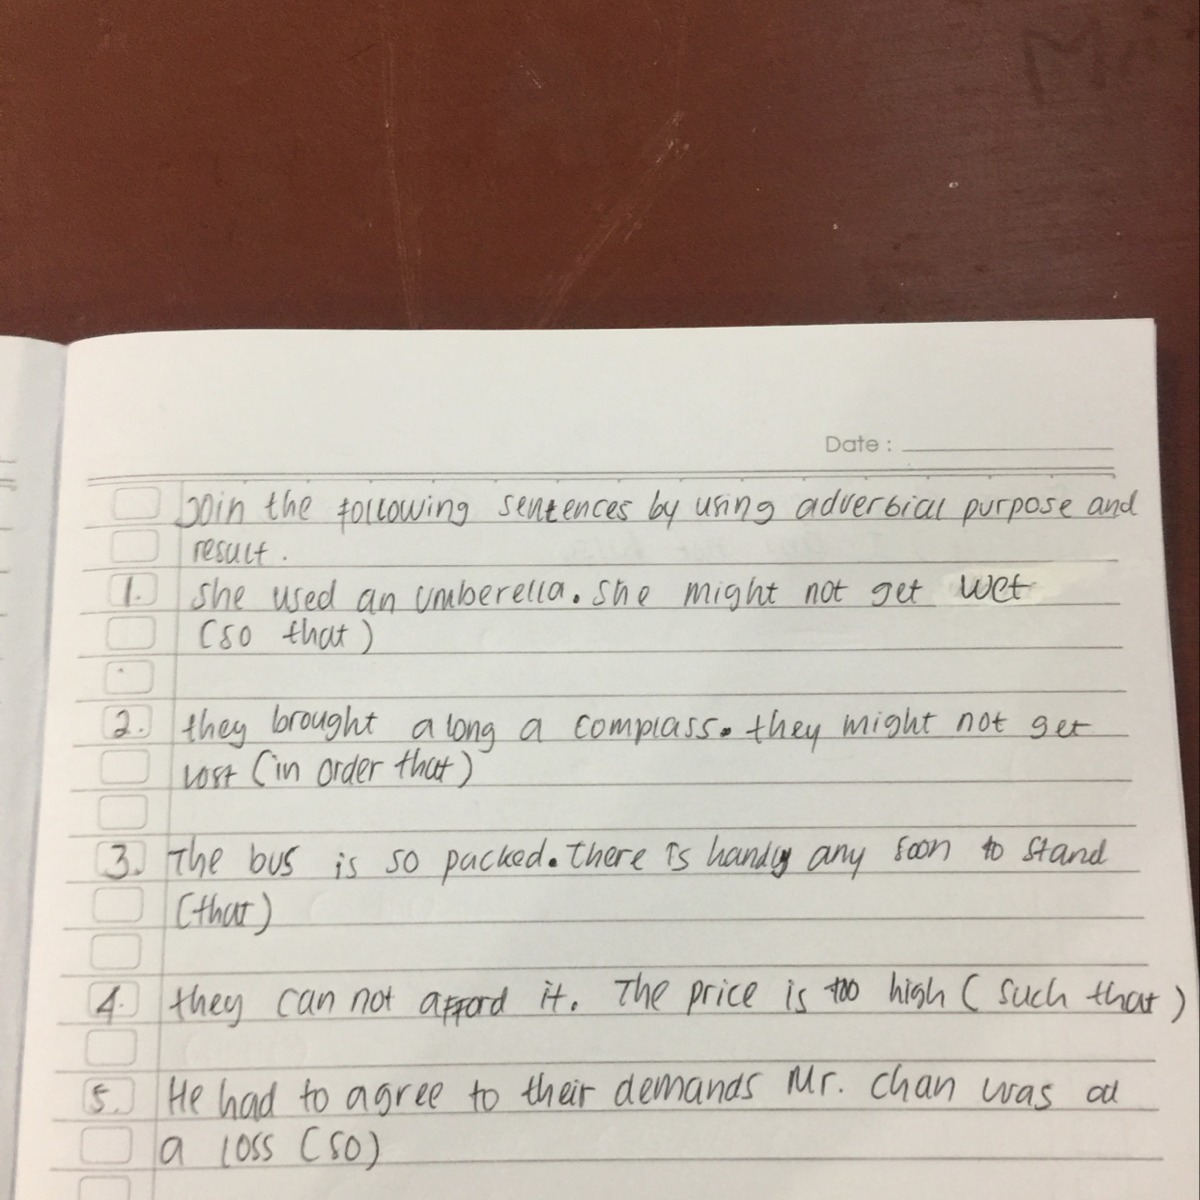 Date :
Join the following sentences by using adverbial purpose and
result.
1. She used an umberella. She might not get wet
(so that)
2. they brought along a compass. they might not get
lost (in order that)
3. The bus is so packed. there is handly any soon to stand
(that)
4. they can not afford it. The price is too high ( such that )
5. He had to agree to their demands Mr. Chan was at
a loss (so)